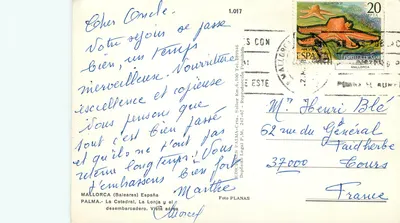 Cher Oncle.
Votre séjour se passe
bien, un temps
merveilleux. Nourriture
excellence et copieuse
Nous pensons que
tout c'est bien passé
et qu'ils ne t'ont pas
retenu longtemps. Nous
t'embrassons bien fort
Marthe
1.017
MALLORCA (Baleares) España
PALMA.- La Catedral, La Lonja y el
desembarcadero. Vista aérea
Foto PLANAS
20
MALLORCA
Mr Henri Blé
62 rue du Général
Faidherbe
37000 Tours
France